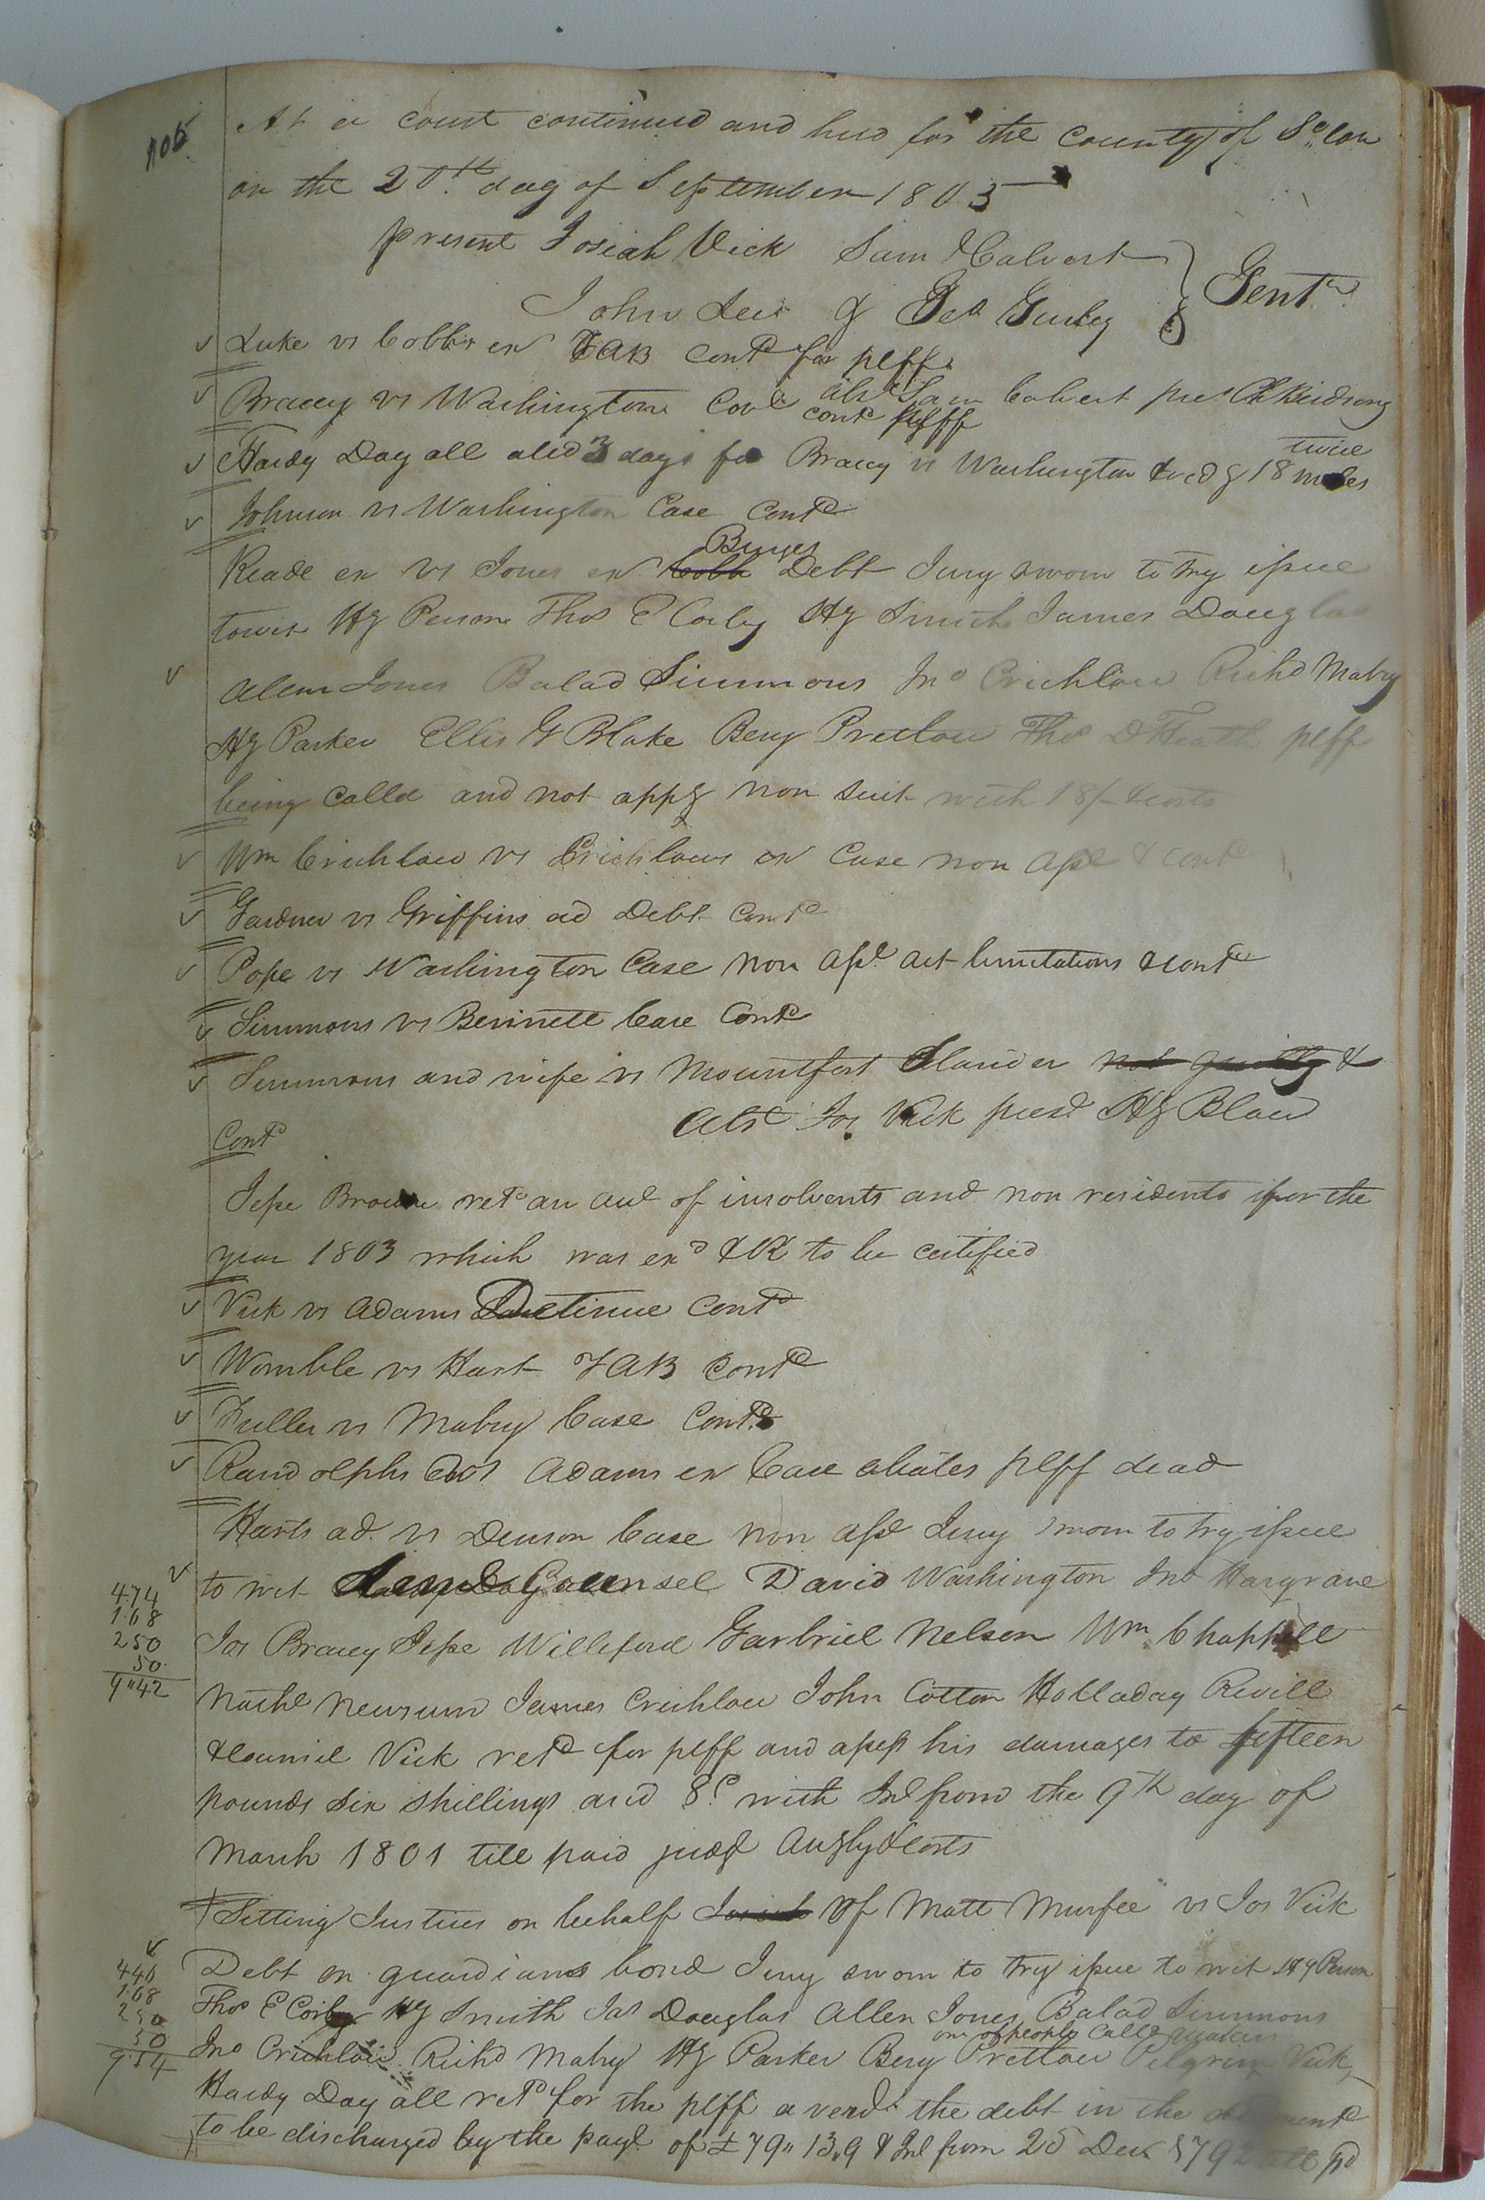 106
At a court continued and held for the county of So,,ton
on the 20th day of September 1803
present Josiah Vick Sam Calvert
John & Gurley } Gent
Luke vs Cobbs ex TAB contd for plff
Bracey vs Washington abs Sam Calvert pres Birdsong
contd plff
twice
Hardy Day all atto 3 days for Bracey vs Washington & 18 miles
Johnson vs Washington Case Contd
Reade ex vs Jones ex Debt Jury sworn to try issue
towit Hy Person Thos E Corby Hy Smith James Douglas
Allen Jones Balad Simmons Jno Crichlow Richd Mabry
Hy Parker Ellis G Blake Benj Pretlow Thos D Heath plff
being calld and not appg non suit with 18/- & costs
Wm Crichlow vs Crichlows ex Case non assd & contd
Gardner vs Griffins ad Debt Contd
Pope vs Washington Case non assd act limitations & contd
Simmons vs Bennett Case Contd
Simmons and wife vs Mountfort Slander not guilty &
abst Jos Vick prest Hy Blow
Contd
Jesse Browne retd an of insolvents and non residents for the
year 1803 which was exd & to be certified
Vick vs Adams Detinue Contd
Womble vs Hart TAB Contd
Fuller vs Mabry Case Contd
Randolphs vs Adams ex Case abates plff dead
Harts ad vs Denson Case non assd Jury sworn to try issue
474
168
250
50
9"42
to wit David Washington Jno Hargrave
Jos Bracey Jesse Williford Garbriel Nelson Wm Chappell
Nathl Newsum James Crichlow John Cotton Holladay Revill
& Council Vick retd for plff and assess his damages to fifteen
pounds six shillings and 8d with Int from the 9th day of
March 1801 till paid judgt & costs
Sitting Justices on behalf of Matt Murfee vs Jos Vick
446
168
250
50
954
Debt on guardians bond Jury sworn to try issue to wit Hy Person
Thos E Corby Hy Smith Jas Douglas Allen Jones Balad Simmons
one of people calld Quakers
Jno Crichlow Richd Mabry Hy Parker Benj Pretlow Pilgrim Vick,
Hardy Day all retd for the plff a verdt the debt in the
to be discharged by the payt of £79,,13,,9 & Int from 25 Decr 1792 till pd